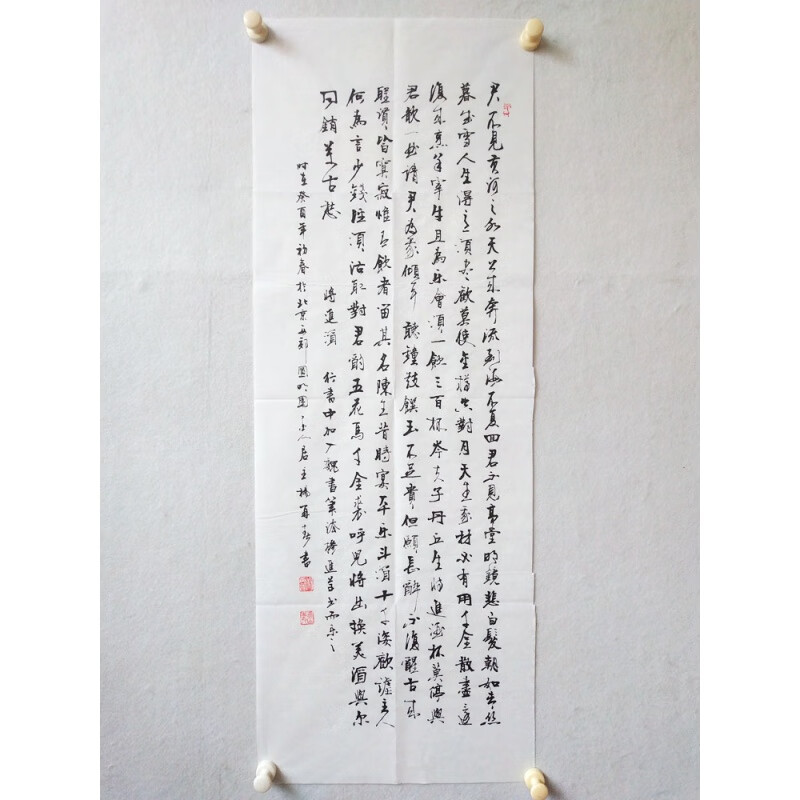 君不见黄河之水天上来奔流到海不复回君不见高堂明镜悲白髮朝如青丝
暮成雪人生得意须尽欢莫使金樽空对月天生我材必有用千金散盡還
復来烹羊宰牛且為乐會須一飲三百杯岑夫子丹丘生将進酒杯莫停與
君歌一曲請君为我倾耳聽鐘鼓饌玉不足貴但願長醉不復醒古来
聖賢皆寂寞惟有飲者留其名陳王昔時宴平乐斗酒十千恣歡谑主人
何為言少錢径須沽取對君酌五花馬千金裘呼兒将出换美酒與尔
同銷萬古愁 将進酒 行書中加入魏書筆法
時在癸酉年初春於北京 書